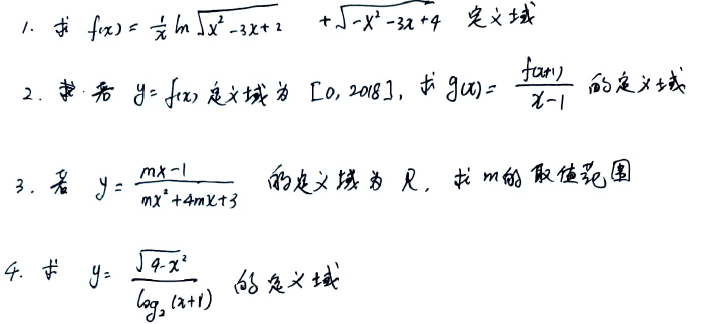 1. 求 f(x)= 1/x ln √(x²-3x+2) +√(-x²-3x+4) 定义域
2. 若 y=f(x) 定义域为 [0, 2018], 求 g(x)= f(x+1)/(x-1) 的定义域
3. 若 y= (mx-1)/(mx²+4mx+3) 的定义域为 R, 求 m的 取值范围
4. 求 y= √(9-x²)/log₂(x+1) 的定义域